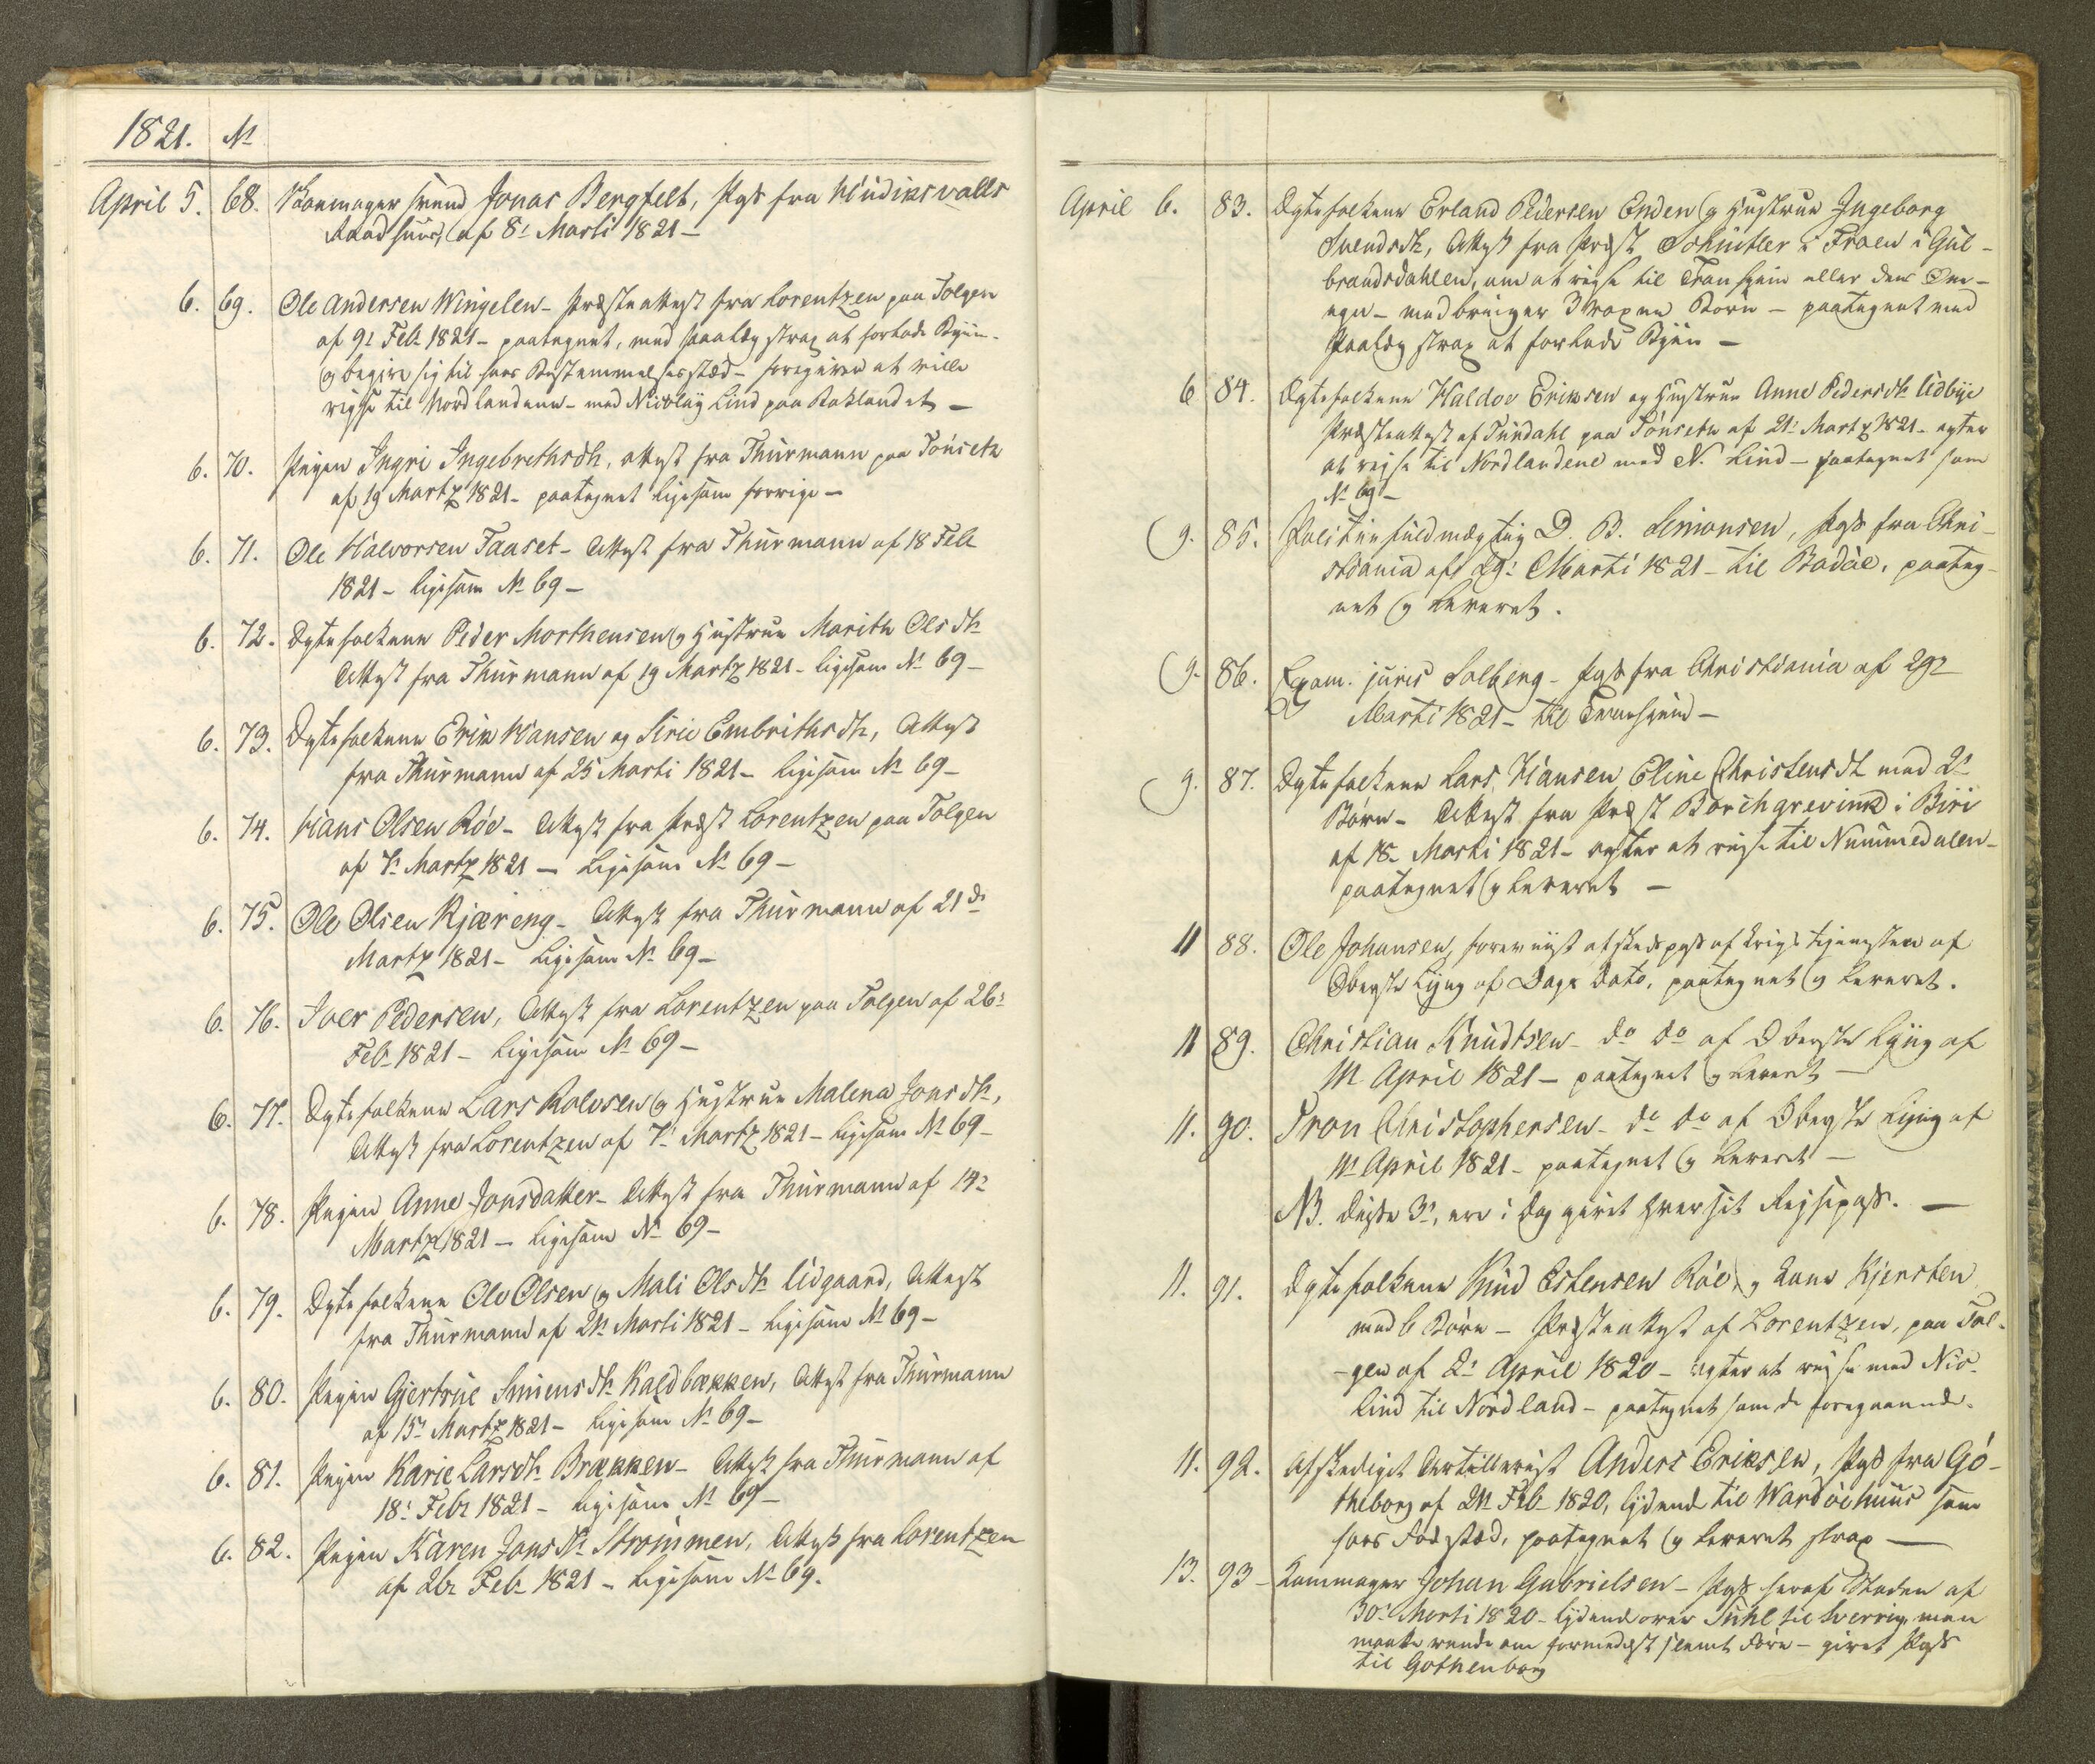 1821. No
April 5. 68. Skomager svend Jonas Bergfelt, Pas fra Hudiksvalls
Raadhuus, af 8: Marti 1821 –
6. 69. Ole Andersen Wingelen – Præsteattest fra Lorentzen paa Tolgen
af 9: Feb: 1821 – paategnet, med Paalæg strax at forlade Byen
og begive sig til hans Bestemmelsessted – foregiver at ville
rejse til Nordlandene – med Nicolay Lind paa Baklandet –
6. 70. Pigen Ingri Ingebrethsdtr, attest fra Thurmann paa Tónseth
af 19 Martz 1821 – paategnet ligesom forrige –
6. 71. Ole Halvorsen Faaset – Attest fra Thurmann af 18 Feb:
1821 – ligesom No 69 –
6. 72. Ægtefolkene Peder Morthensen og Hustrue Marith Olsdtr
Attest fra Thurmann af 19 Martz 1821 – ligesom No 69 –
6. 73. Ægtefolkene Erik Hansen og Sirie Embrithsdtr, Attest
fra Thurmann af 25 Marti 1821 – ligesom No 69 –
6. 74. Hans Olsen Róe – Attest fra Præst Lorentzen paa Tolgen
af 7: Martz 1821 – Ligesom No 69 –
6. 75. Ole Olsen Kjæreng – Attest fra Thurmann af 21de
Martz 1821 – Ligesom No 69 –
6. 76. Iver Pedersen, Attest fra Lorentzen paa Tolgen af 26:
Feb: 1821 – Ligesom No 69 –
6. 77. Ægtefolkene Lars Rolvsen og Hustrue Malena Jonsdtr,
Attest fra Lorentzen af 7: Martz 1821 – ligesom No 69 –
6. 78. Pigen Anne Jonsdatter – Attest fra Thurmann af 14:
Martz 1821 – ligesom No 69 –
6. 79. Ægtefolkene Ole Olsen og Mali Olsdtr Udgaard, Attest
fra Thurmann af 21: Marti 1821 – ligesom No 69 –
6. 80. Pigen Gjertrue Simensdtr Kaldbækken, Attest fra Thurmann
af 15: Martz 1821 – ligesom No 69 –
6. 81. Pigen Karie Larsdtr Brækken – Attest fra Thurmann af
18: Feb: 1821 – ligesom No 69 –
6. 82. Pigen Karen Jonsdtr Strómmen, Attest fra Lorentzen
af 26: Feb: 1821 – ligesom No 69.
April 6. 83. Ægtefolkene Erland Pedersen Enden og Hustrue Ingeborg
Svendsdtr, Attest fra Præst Schnitler i Froen i Gul-
brandsdahlen, om at rejse til Tronhjem eller dens Om-
egn – medbringer 3 voxne Børn – paategnet med
Paalæg strax at forlade Byen –
6 84. Ægtefolkene Haldor Eriksen og Hustrue Anne Pedersdtr Udbye
Præsteattest af Turdahl paa Tónseth af 21: Martz 1821 – agter
at rejse til Nordlandene med N. Lind – paategnet som
No 69 –
9. 85. Politiefuldmægtig D. B. Simonsen, Pas fra Chri-
stiania af 29: Marti 1821 – til Bodöe, paateg-
net og leveret.
9. 86. Exam. juris Solberg – Pas fra Christiania af 29:
Marti 1821 – til Tronhjem –
9. 87. Ægtefolkene Lars Hansen Eline Christensdtr med 2:
Børn – Attest fra Præst Borchgrevink i Biri
af 18: Marti 1821 – agter at rejse til Nummedalen –
paategnet og leveret –
11 88. Ole Johansen, foreviist afskedspas af Krigstjenesten af
Oberste Lyng af Dags Dato, paategnet og leveret.
11 89. Christian Knudtsen – do do af Oberste Lyng af
11: April 1821 – paategnet og leveret –
11. 90. Tron Christophersen – do do af Oberste Lyng af
11: April 1821 – paategnet og leveret –
NB. disse 3:, ere i Dag givet hver sit Rejsepas. –
11. 91. Ægtefolkene Knud Estensen Róe, og Kone Kjersten
med 6 Børn – Præsteattest af Lorentzen, paa Tol-
gen af 2: April 1820 – agter at rejse med Nic:
Lind til Nordland – paategnet som de foregaaende.
11. 92. Afskediget Artillerist Anders Eriksen, Pas fra Gó-
theborg af 21: Feb: 1820, lydende til Wardöehuus som
hans Fødested, paategnet og leveret strax –
13. 93 – Kammager Johan Gabrielsen – Pas her af Staden af
30: Marti 1820 – lydende over Suhl til Sverrig, men
maatte vende om formedelst slemt Føre – givet Pas
til Gothenborg